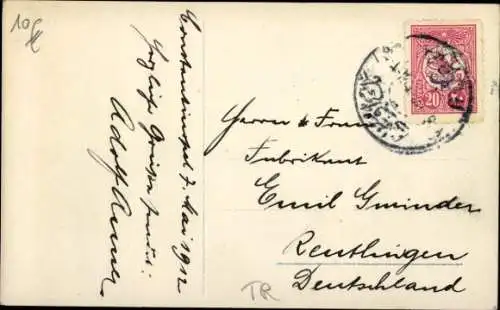 Constantinopel 7. Mai 1912
Herzliche Grüsse sendet
Adolf
Herrn & Frau
Fabrikant
Emil Gminder
Reutlingen
Deutschland
20
TR